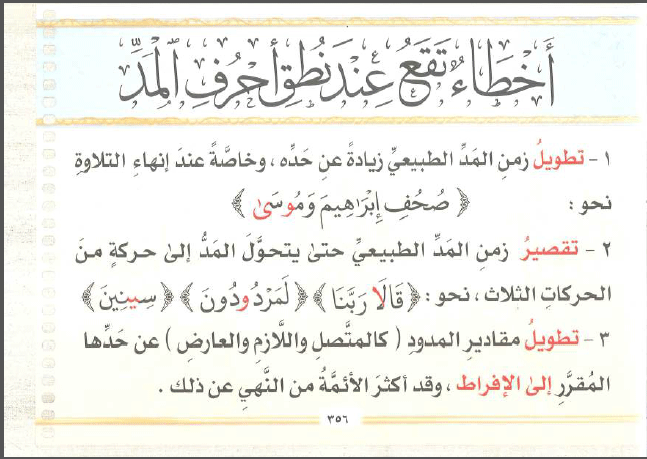 أَخْطَاءٌ تَقَعُ عِنْدَ نُطْقِ أَحْرُفِ الْمَدِّ
١ - تطويلُ زمنِ المَدِّ الطبيعيِّ زيادةً عن حَدِّه ، وخاصَّةً عندَ إنهاءِ التلاوةِ
نحو : ﴿ صُحُفِ إِبْرَاهِيمَ وَمُوسَىٰ ﴾
٢ - تقصيرُ زمنِ المَدِّ الطبيعيِّ حتىٰ يتحوَّلَ المَدُّ إلىٰ حركةٍ منَ
الحركاتِ الثلاث ، نحو : ﴿ قَالَا رَبَّنَا ﴾ ﴿ لَمَرْدُودُونَ ﴾ ﴿ سِنِينَ ﴾
٣ - تطويلُ مقاديرِ المدودِ ( كالمتَّصلِ واللَّازمِ والعارضِ ) عن حَدِّها
المُقرَّرِ إلىٰ الإفراط ، وقد أكثرَ الأئمَّةُ من النَّهيِ عن ذلك .
٣٥٦